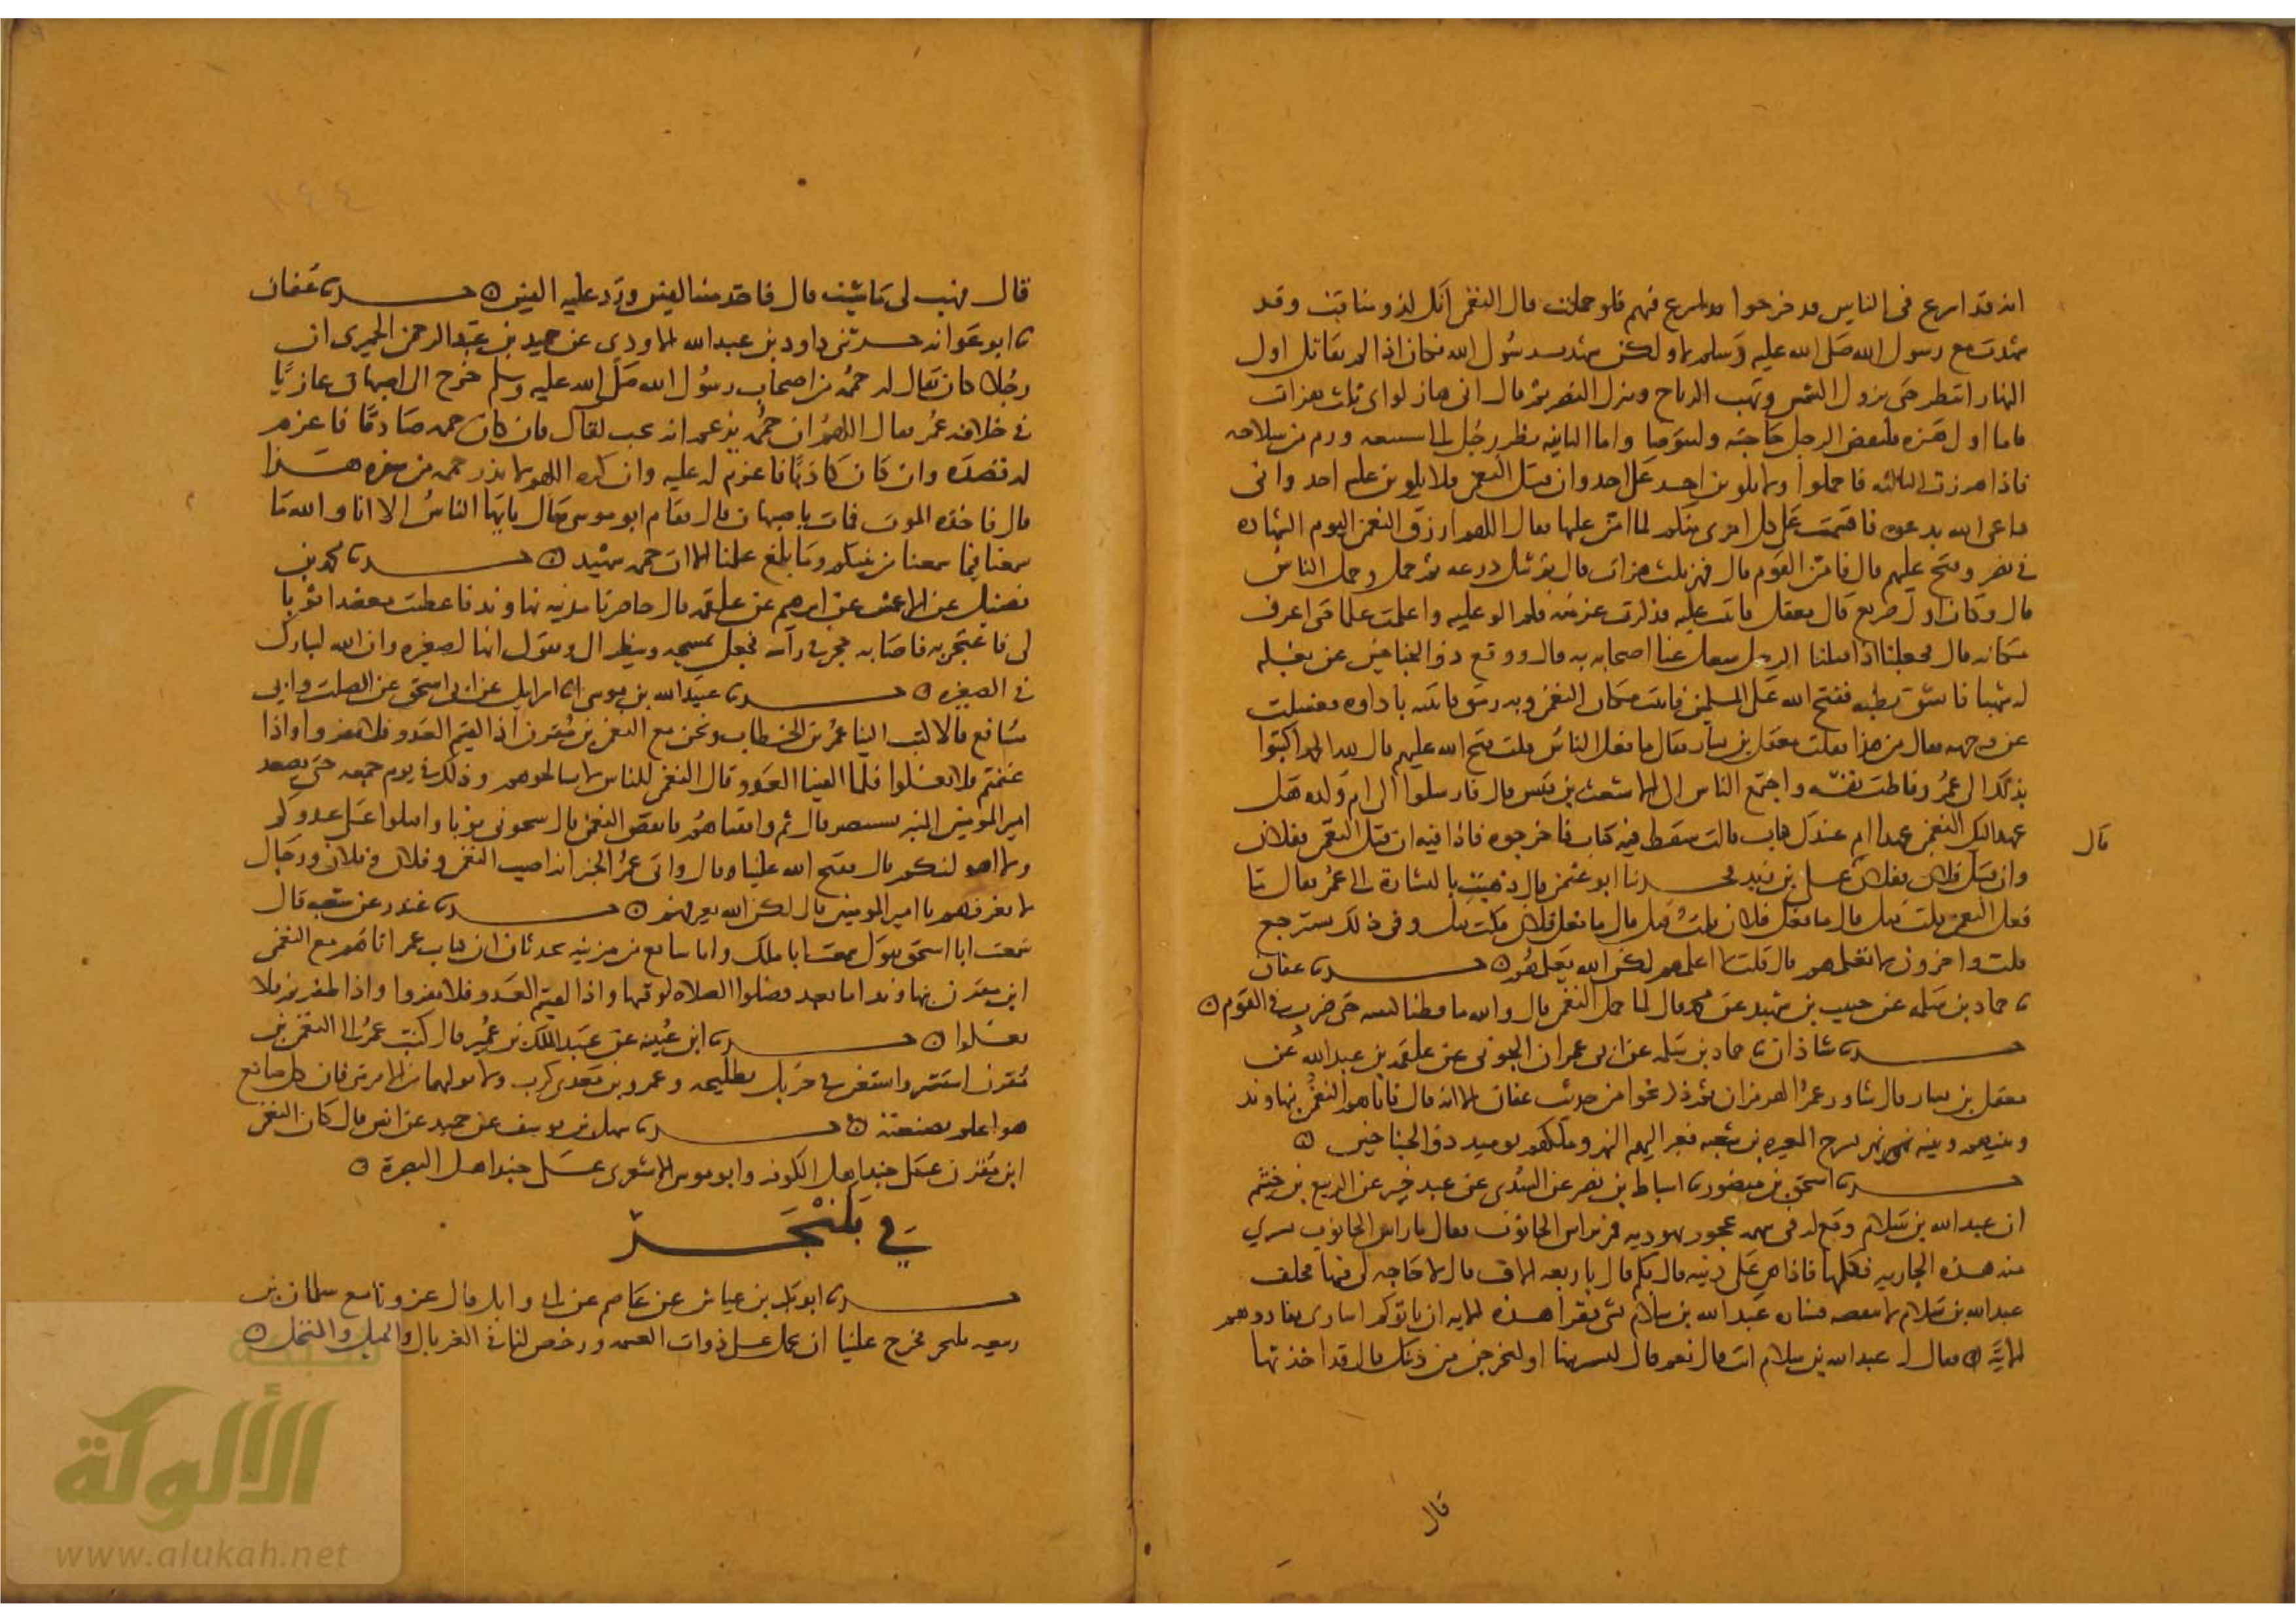 انه قد اسرع فى الناس قد خرجوا قد اسرع فيهم فلو حملت قال النعمن انك لذو مناقب وقد
شهدت مع رسول الله صلى الله عليه وسلم ولكن شهدت رسول الله فكان اذا لم يقاتل اول
النهار انتظر حتى تزول الشمس وتهب الرياح وينزل النصر ثم قال انى هاز لواى ثلث هزات
فاما اول هزة فليقض الرجل حاجته وليتوضا واما الثانيه فنظر رجل الى شسعه ورم من سلاحه
فاذا هززت الثالثه فاحملوا ولا يلوين احد على احد وان قتل النعمن فلا يلوين عليه احد وانى
داعى الله بدعوه فاقسمت على كل امرى منكم لما امن عليها فقال اللهم ارزق النعمن اليوم الشهاده
فى نصر وفتح عليهم قال فامن القوم قال فهز ثلث هزات قال ثم نثل درعه ثم حمل وحمل الناس
قال وكان اول صريع قال معقل فاتيت عليه فذكرت عزمته فلم الو عليه واعلمت علما حتى اعرف
مكانه قال فجعلنا اذا قتلنا الرجل شغل عنا اصحابه به قال ووقع ذو الجناحين عن بغله
له شهبا فانشق بطنه ففتح الله على المسلمين فاتيت مكان النعمن وبه رمق فاتيته باداوه فغسلت
عن وجهه فقال من هذا فقلت معقل بن يسار فقال ما فعل الناس قلت فتح الله عليهم قال لله الحمد اكتبوا
بذلك الى عمر وفاظت نفسه واجتمع الناس الى الاشعث بن قيس قال فارسلوا الى ام ولده هل
عهد اليك النعمن عهدا ام عندك كتاب قالت سفط فيه كتاب فاخرجوه فاذا فيه ان قتل النعمن ففلان
قال
وان قتل فلان ففلان على بن زيد ثنا ابو عثمن قال ذهبت بالبشارة الى عمر فقال ما
فعل النعمن قلت قتل قال ما فعل فلان قلت قتل قال ما فعل فلان قلت قتل وفى ذلك يسترجع
قلت واخرون لا نعلمهم قال قلت لا اعلمهم لكن الله يعلمهم حدثنا عفان
ثنا حماد بن سلمه عن حبيب بن شهيد عن محمد قال لما حمل النعمن قال والله ما وطئنا كتفيه حتى ضرب فى القوم
حدثنا شاذان ثنا حماد بن سلمه عن ابى عمران الجونى عن علقمه بن عبد الله عن
معقل بن يسار قال شاور عمر الهرمزان ثم ذكر نحوا من حديث عفان الا انه قال فاتاهم النعمن بنهاوند
وبينهم وبينه نهر فسرح المغيره بن شعبه فعبر اليهم النهر وملكهم يوميذ ذو الجناحين
حدثنا اسحق بن منصور ثنا اسباط بن نصر عن السدى عن عبد خير عن الربيع بن خثيم
ان عبد الله بن سلام وقع له فى سهمه عجوز يهوديه فمر براس الجالوت فقال يا راس الجالوت تشترى
منه هذه الجاريه فكلمها فاذا هى على دينه قال بكم قال باربعه الاف قال لا حاجه لى فيها فحلف
عبد الله بن سلام لا ينقصه فسار عبد الله بن سلام بشى فقرا هذه الايه ان ياتوكم اسارى تفادوهم
الايه فقال له عبد الله بن سلام انت قال نعم قال لتشترينها او لتخرجن من دينك قال قد اخذتها
قال
قال فهب لى ما شيت قال فاخذ منه الفين ورد عليه الفين حدثنا عفان
ثنا ابو عوانه حدثنى داود بن عبد الله الاودى عن حميد بن عبد الرحمن الحميرى ان
رجلا كان يقال له حممه من اصحاب رسول الله صلى الله عليه وسلم خرج الى اصبهان غازيا
فى خلافه عمر فقال اللهم ان حممه يزعم انه يحب لقاك فان كان حممه صادقا فاعزم
له بصدقه وان كان كاذبا فاعزم له عليه وان كره اللهم لا ترد حممه من سفره هذا
قال فاخذه الموت فمات باصبهان قال فقام ابو موسى فقال يا ايها الناس الا انا والله ما
سمعنا فيما سمعنا من نبيكم وما بلغ علمنا الا ان حممه شهيد حدثنا محمد بن
فضيل عن الاعمش عن ابرهيم عن علقمه قال حاصرنا مدينه نهاوند فاعطيت معضدا ثوبا
لى فاعتجر به فاصابه حجر فى راسه فجعل يمسحه وينظر الى ويقول انها لصغيره وان الله ليبارك
فى الصغيره حدثنا عبيد الله بن موسى انا اسرايل عن ابى اسحق عن الصلت وابى
مسافع قالا كتب الينا عمر بن الخطاب ونحن مع النعمن بن مقرن اذا لقيتم العدو فلا تفروا واذا
غنمتم فلا تغلوا فلما لقينا العدو قال النعمن للناس لا تواقعوهم وذلك فى يوم جمعه حتى يصعد
امير المومنين المنبر يستنصر قال ثم واقعناهم فانقض النعمن قال سجونى ثوبا واقبلوا على عدوكم
ولا اهولنكم قال ففتح الله علينا قال واتى عمر الخبر انه اصيب النعمن وفلان وفلان ورجال
لا نعرفهم يا امير المومنين قال لكن الله يعرفهم حدثنا غندر عن شعبه قال
سمعت ابا اسحق يقول سمعت ابا ملك وابا مسافع من مزينه يحدثان ان كتاب عمر اتاهم مع النعمن
ابن مقرن بنهاوند اما بعد فصلوا الصلاه لوقتها واذا لقيتم العدو فلا تفروا واذا ظفرتم فلا
تغلوا حدثنا ابن عيينه عن عبد الملك بن عمير قال كتب عمر الى النعمن بن
مقرن استشر واستعن فى حربك بطليحه وعمرو بن معدى كرب ولا تولهما من الامر شيا فان كل صانع
هو اعلم بصنعته حدثنا سهل بن يوسف عن حميد عن انس قال كان النعمن
ابن مقرن على جند اهل الكوفه وابو موسى الاشعرى على جند اهل البصرة
فى بلنجر
حدثنا ابو بكر بن عياش عن عاصم عن ابى وايل قال غزونا مع سلمان بن
ربيعه بلنجر فحرج علينا ان نحمل على دواب الغنيمه ورخص لنا فى الغربال والحبل والمنخل
الألوكة
www.alukah.net